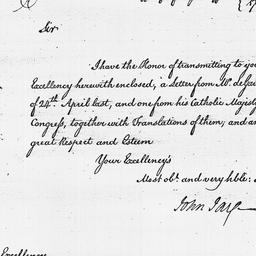 Sir
I have the Honor of transmitting to you
Excellency herewith enclosed, a Letter from Mr. de
of 24th April last, and one from his Catholic Majesty
Congress, together with Translations of them; and am
great Respect and Esteem
Your Excellency's
Most obt. and very hble:
John Jay
Excellency